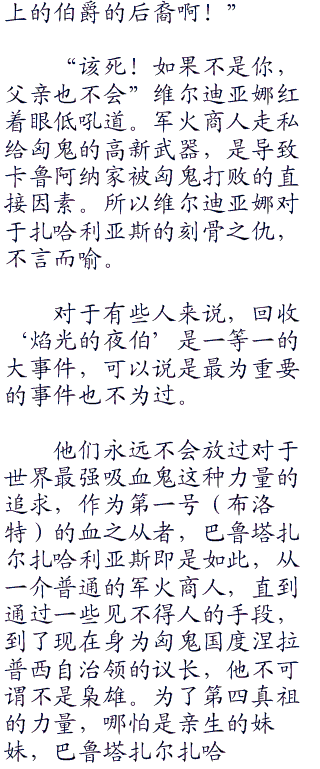 上的伯爵的后裔啊！”
“该死！如果不是你，
父亲也不会”维尔迪亚娜红
着眼低吼道。军火商人走私
给匈鬼的高新武器，是导致
卡鲁阿纳家被匈鬼打败的直
接因素。所以维尔迪亚娜对
于扎哈利亚斯的刻骨之仇，
不言而喻。
对于有些人来说，回收
‘焰光的夜伯’是一等一的
大事件，可以说是最为重要
的事件也不为过。
他们永远不会放过对于
世界最强吸血鬼这种力量的
追求，作为第一号（布洛
特）的血之从者，巴鲁塔扎
尔扎哈利亚斯即是如此，从
一介普通的军火商人，直到
通过一些见不得人的手段，
到了现在身为匈鬼国度涅拉
普西自治领的议长，他不可
谓不是枭雄。为了第四真祖
的力量，哪怕是亲生的妹
妹，巴鲁塔扎尔扎哈